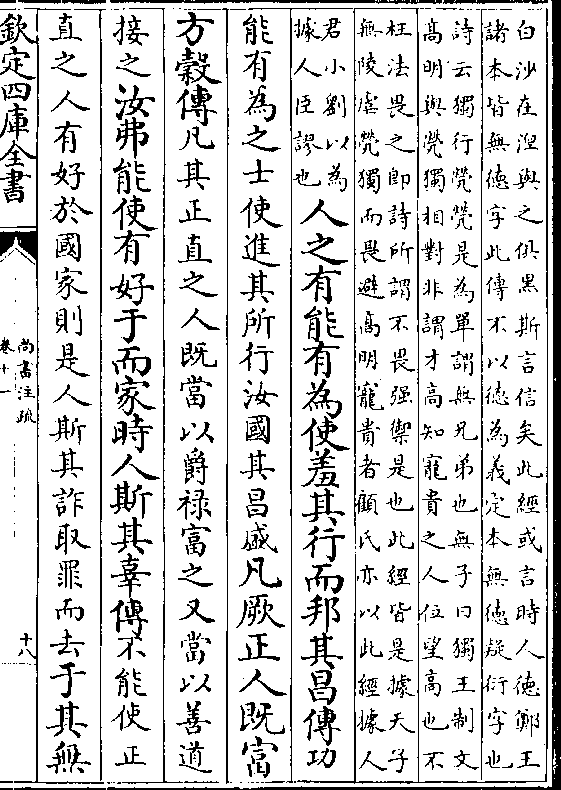 白沙在涅與之俱黑斯言信矣此經或言時人德鄭王
諸本皆無德字此傳不以德為義定本無德疑衍字也
詩云獨行煢煢是為單謂無兄弟也無子曰獨王制文
高明與煢獨相對非謂才高知寵貴之人位望高也不
枉法畏之即詩所謂不畏强禦是也此經皆是據天子
無陵虐煢獨而畏避高明寵貴者顧氏亦以此經據人
君小劉以為
據人臣謬也
人之有能有為使羞其行而邦其昌傳功
能有為之士使進其所行汝國其昌盛凡厥正人既富
方穀傳凡其正直之人既當以爵祿富之又當以善道
接之汝弗能使有好于而家時人斯其辜傳不能使正
直之人有好於國家則是人斯其詐取罪而去于其無
欽定四庫全書
尚書注疏
卷十一
十八